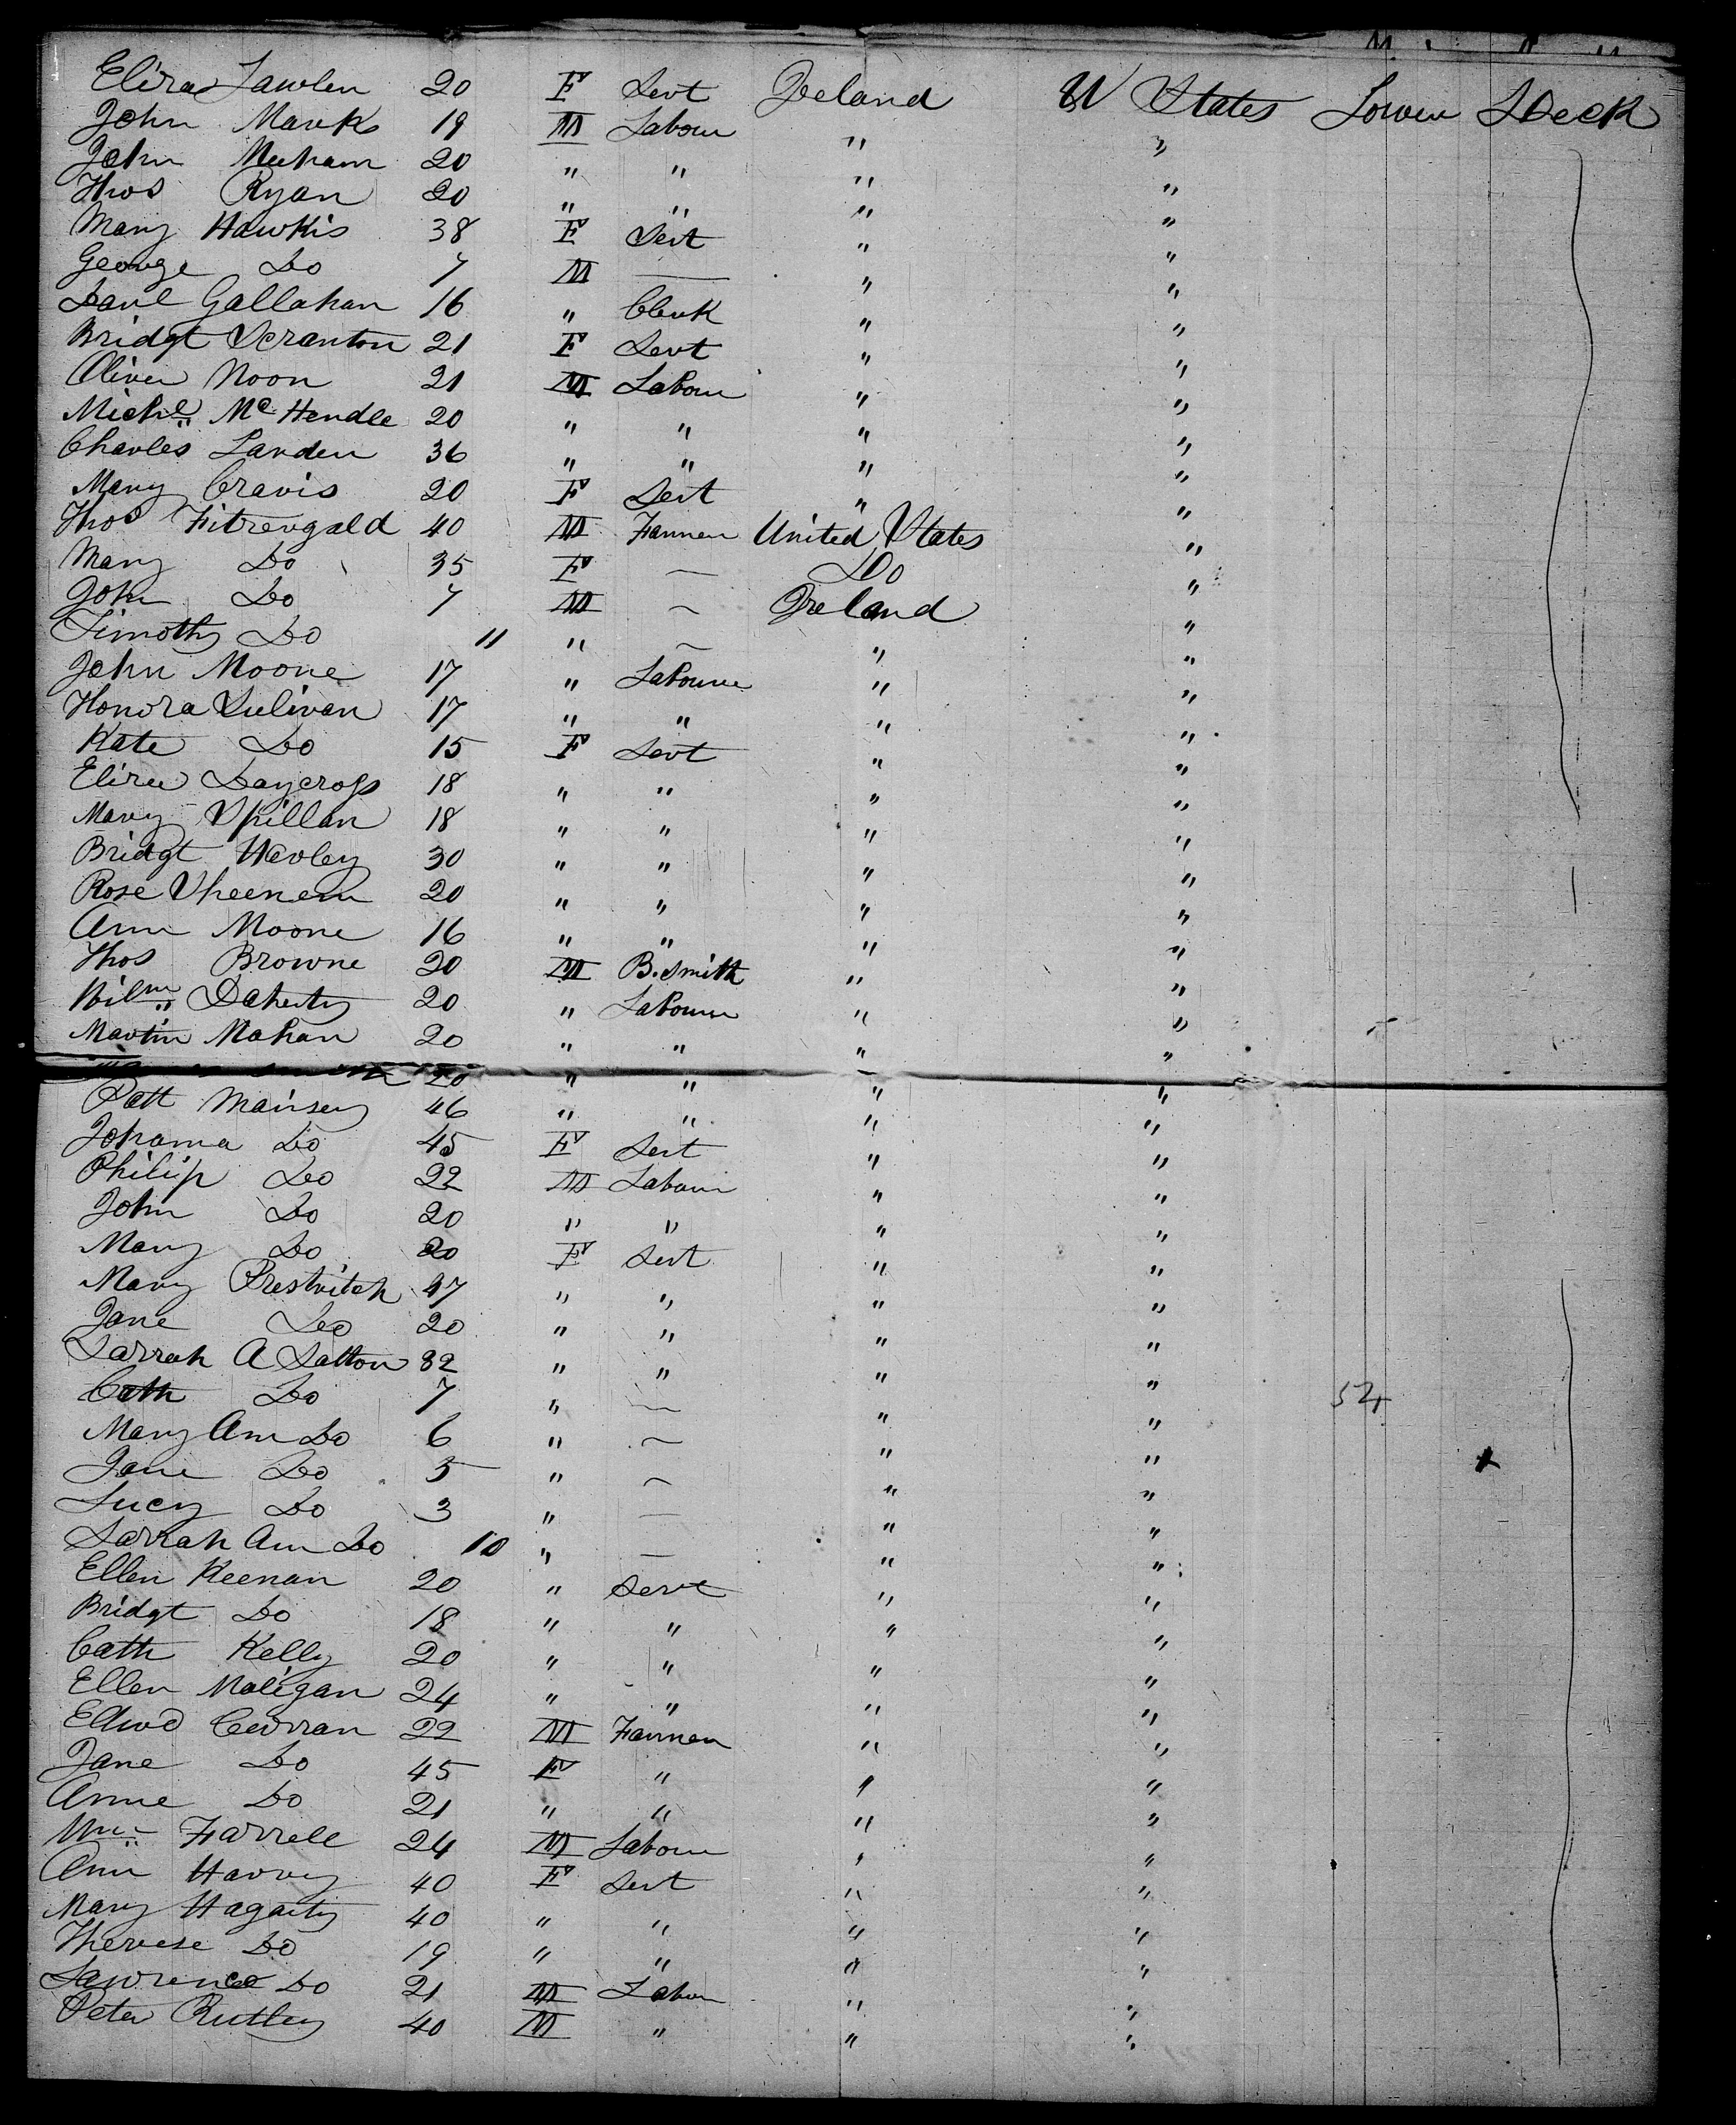 Eliza Lawlen 20 F Servt Ireland U States Lower Deck
John Marks 19 M Labour " "
John Meeham 20 " " " "
Thos Ryan 20 " " " "
Mary Hawkis 38 F Sert " "
George Do 7 M — " "
Danl Gallahan 16 " Clerk " "
Bridgt Scranton 21 F Servt " "
Oliver Noon 21 M Labour " "
Michl Mc Hendle 20 " " " "
Charles Landen 36 " " " "
Mary Cravis 20 F Sert " "
Thos Fitzergald 40 M Farmer United States "
Mary Do 35 F — Do "
John Do 7 M — Ireland "
Timothy Do 11 " — " "
John Moore 17 " Labourer " "
Honora Sulivan 17 " " " "
Kate Do 15 F Servt " "
Eliza Daycross 18 " " " "
Mary Spillan 18 " " " "
Bridgt Werley 30 " " " "
Rose Sheenem 20 " " " "
Ann Moore 16 " " " "
Thos Browne 20 M B. Smith " "
Wilm Doherty 20 " Labourer " "
Martin Mahan 20 " " " "
20 " " " "
Patt Mainsey 46 " " " "
Johanna Do 45 F Sert " "
Philip Do 22 M Labour " "
John Do 20 " " " "
Mary Do 20 F Sert " "
Mary Prestvitch 47 " " " "
Jane Do 20 " " " "
Sarrah A Satton 32 " " " "
Cath Do 7 " — " " 54
Mary Ann Do 6 " — " "
Jane Do 5 " — " "
Lucy Do 3 " — " "
Sarrah Ann Do 10 " — " "
Ellen Keenan 20 " Servt " "
Bridgt Do 18 " " " "
Cath Kelly 20 " " " "
Ellen Maligan 24 " " " "
Edwd Curran 22 M Farmer " "
Jane Do 45 F " " "
Anne Do 21 " " " "
Wm Farrell 24 M Labour " "
Ann Harvey 40 F Sert " "
Mary Hagarty 40 " " " "
Therese Do 19 " " " "
Lawrence Do 21 M Labour " "
Peter Rutley 40 M " " "